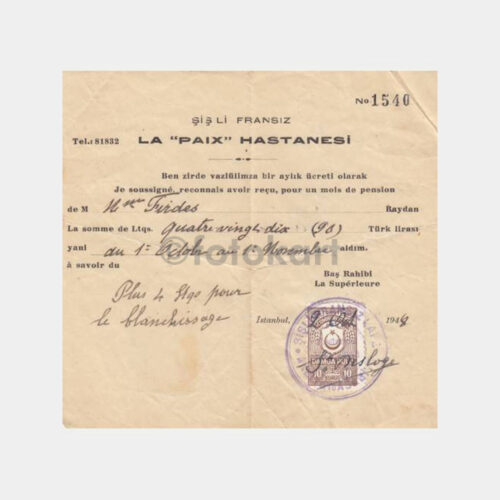 No 1540
ŞİŞLİ FRANSIZ
Tel.: 81832 LA "PAIX" HASTANESİ
Ben zirde vazıülimza bir aylık ücreti olarak
Je soussigné, reconnais avoir reçu, pour un mois de pension
de M Mme Firdes Baydan
La somme de Ltqs. Quatre vingt dix (90) Türk lirası
yani du 1er Octobre au 1er Novembre aldım.
à savoir du
Baş Rahibi
La Supérieure
Plus 4 Ltqs pour
le blanchissage
Istanbul, 2 Oct. 194
DAMGA PULU
10 10
©fotokart